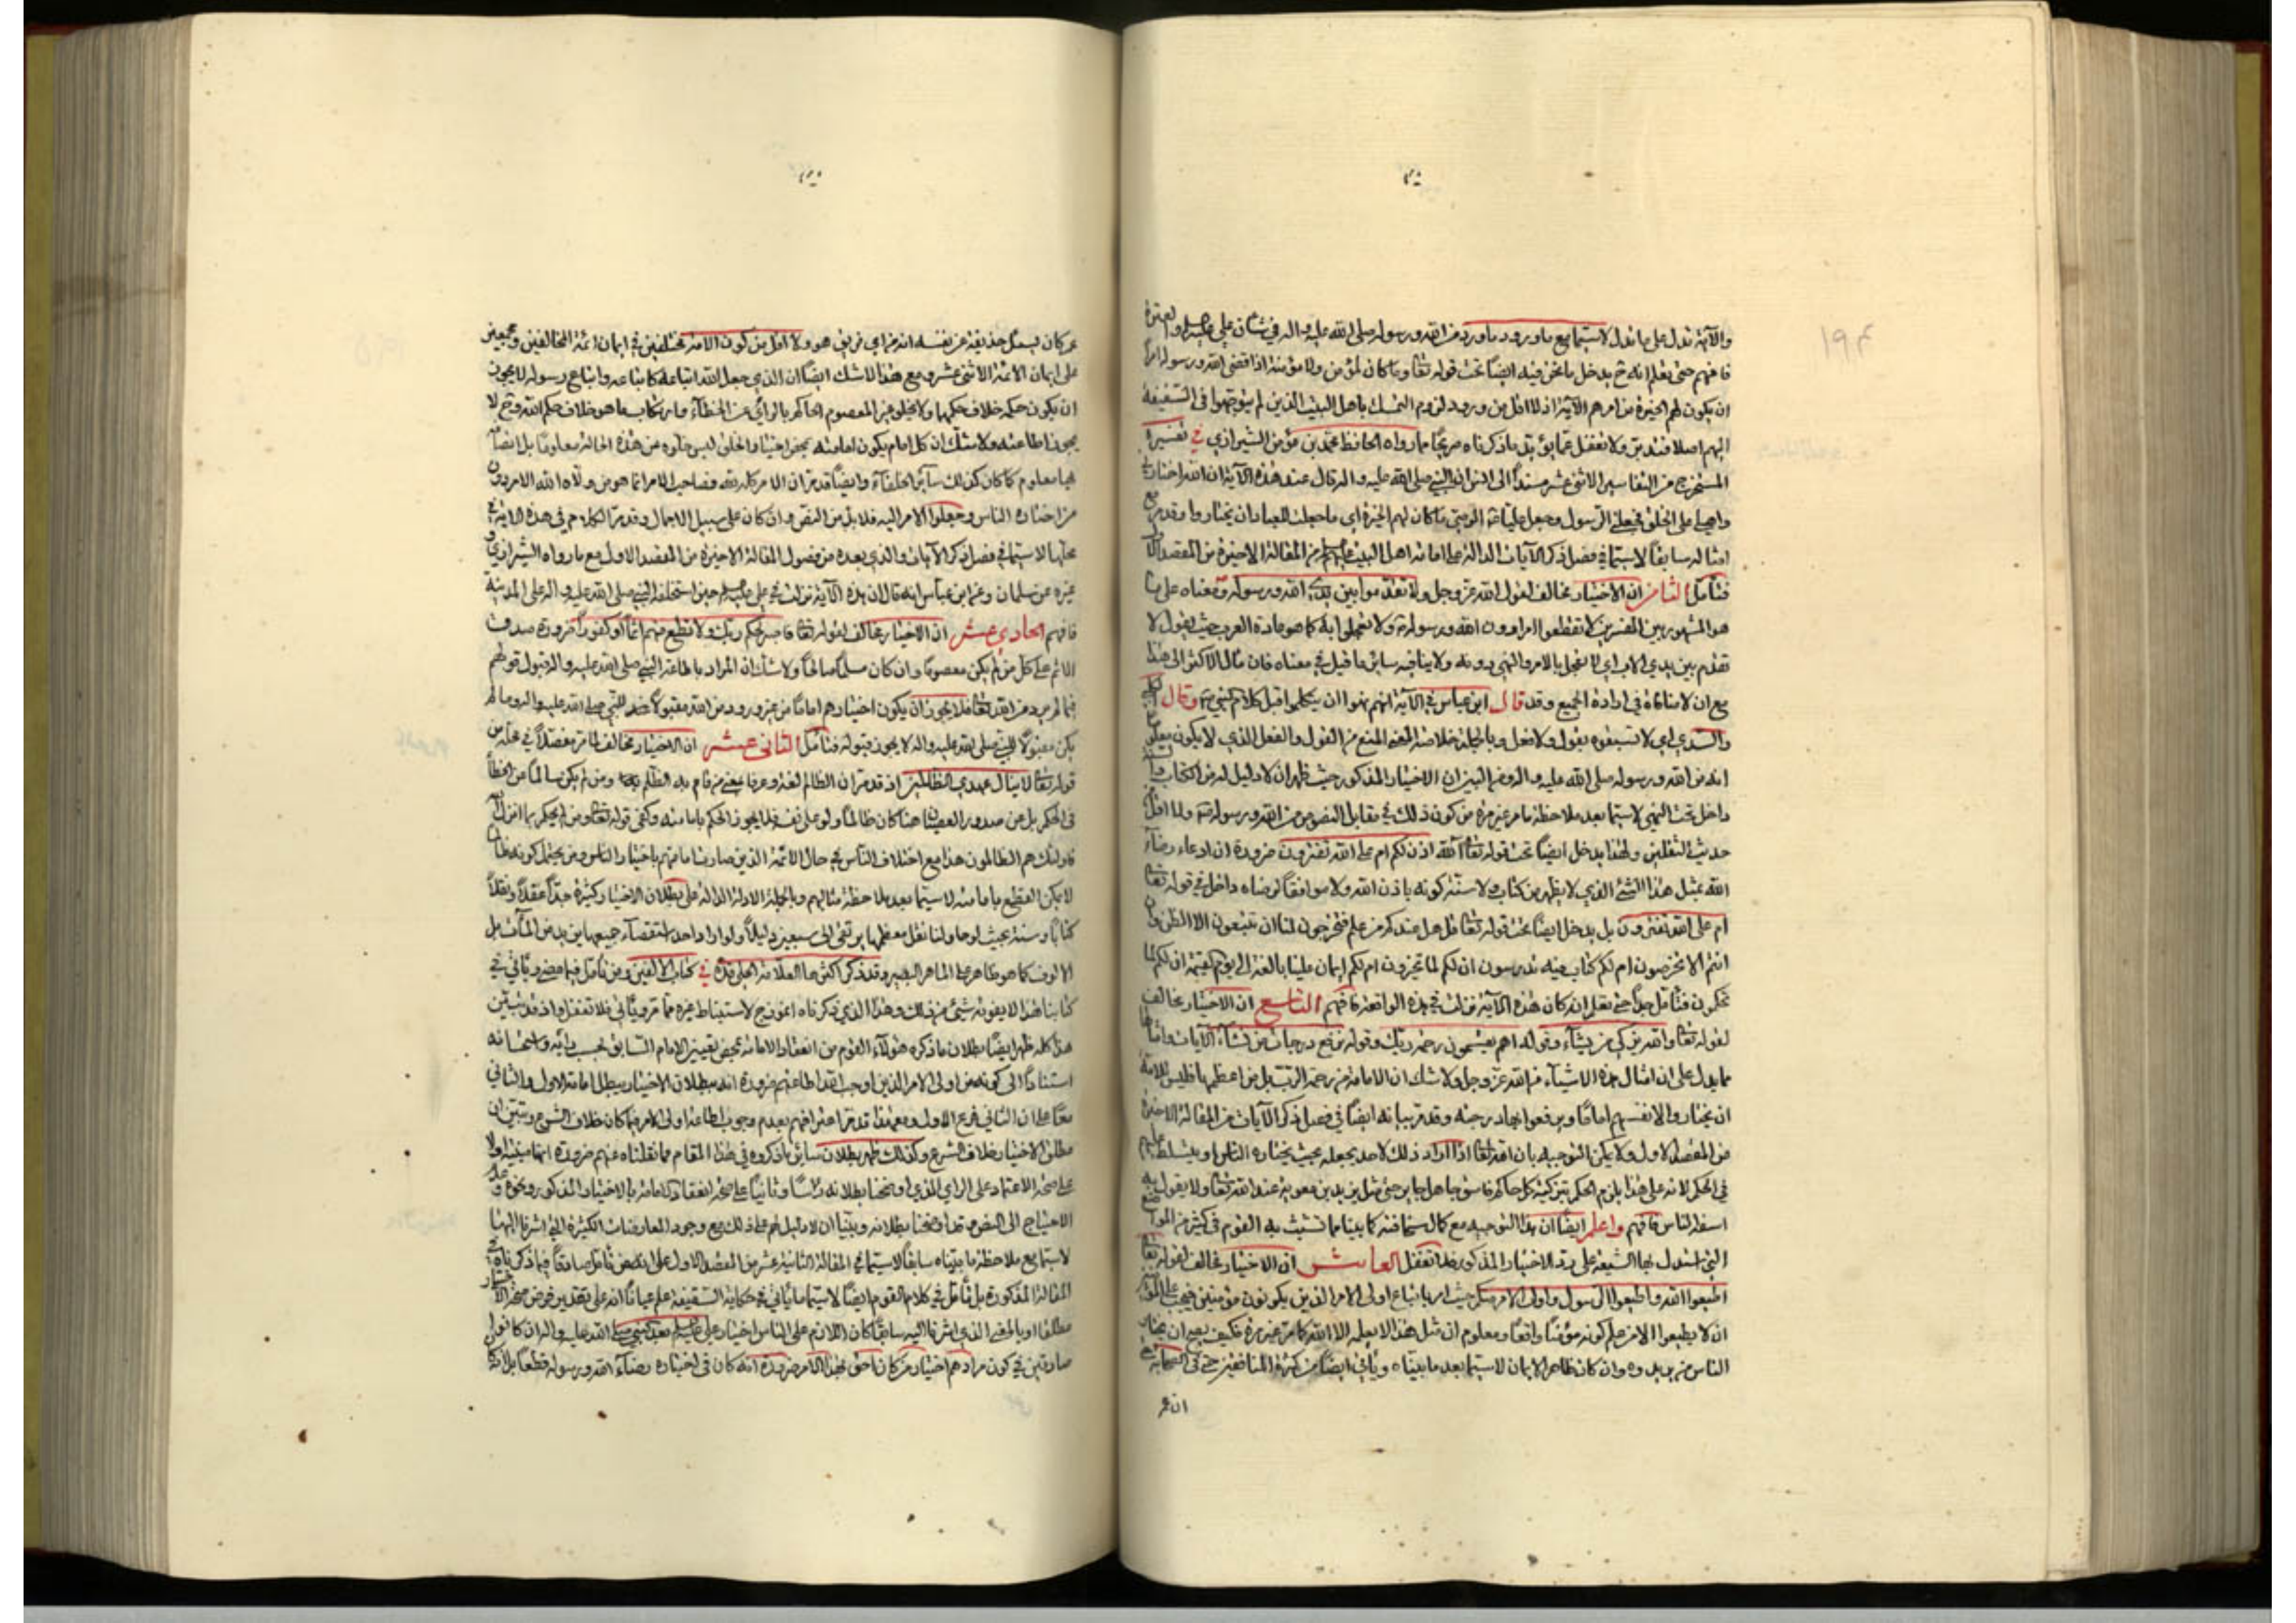 والآية تدل على ما تدل لاسيما مع ورود ما ورد من الله ورسوله صلى الله عليه واله في شأن علي والعترة
فافهم حتى تعلم انه ح يدخل ما نحن فيه ايضاً تحت قوله تعا وما كان لمؤمن ولا مؤمنة اذا قضى الله ورسوله امراً
ان يكون لهم الخيرة من امرهم الآية اذ لا اقل من ورود لزوم التمسك باهل البيت الذين لم يتوجهوا في السقيفة
اليهم اصلا فتدبر ولا تغفل عما يؤيد ما ذكرناه صريحاً مما رواه الحافظ محمد بن مؤمن الشيرازي في تفسيره
المستخرج من التفاسير الاثنى عشر مسنداً الى انس ان النبي صلى الله عليه واله قال عند هذه الآية ان الله اختارني
واهلبيتي على الخلق فجعلني الرسول وجعل علياً الوصي ما كان لهم الخيرة اي ما جعلت للعباد ان يختاروا وقد مر مع
امثاله سابقاً لاسيما في فصل ذكر الآيات الدالة على امامة اهل البيت من المقالة الاخيرة من المقصد الاول
فتأمل الثامن ان الاختيار مخالف لقول الله عز وجل ولا تقدموا بين يدي الله ورسوله ومعناه على ما
هو المشهور بين المفسرين لا تقطعوا امرا دون الله ورسوله ولا تعجلوا به كما هو عادة العرب حيث يقول لا
تقدم بين يدي الاب اي لا تعجل بالامر والنهي دونه ولا ينافيه سائر ما قيل في معناه فان مآل الاكثر الى هذا
مع ان لا منافاة في ارادة الجميع وقد قال ابن عباس في الآية انهم نهوا ان يتكلموا قبل كلام النبي وقال
والسدي اي لا تسبقوه بقول ولا فعل وبالجملة خلاصة المعنى المنع من القول والفعل الذي لا يكون
انه من الله ورسوله صلى الله عليه واله ومن البين ان الاختيار المذكور حيث ظهر ان لا دليل له من الكتاب
داخل تحت النهي لاسيما بعد ملاحظة ما مر غير مرة من كون ذلك في مقابل النصوص من الله ورسوله ولا اقل
حديث الثقلين ولهذا يدخل ايضاً تحت قوله تعا آلله اذن لكم ام على الله تفترون ضرورة ان ادعاء رضاء
الله بمثل هذا الشئ الذي لا يظهر من كتاب ولا سنة كونه باذن الله ولا موافقاً لرضاه داخل في قوله تعا
ام على الله تفترون بل يدخل ايضاً تحت قوله تعا قل هل عندكم من علم فتخرجوه لنا ان تتبعون الا الظن وان
انتم الا تخرصون ام لكم كتاب فيه تدرسون ان لكم لما تخيرون ام لكم ايمان علينا بالغة الى يوم القيمة ان لكم لما
تحكمون فتأمل جداً حتى تعلم انه كان هذه الآية نزلت في هذه الواقعة فافهم التاسع ان الاختيار مخالف
لقوله تعا والله يزكي من يشاء وقوله اهم يقسمون رحمة ربك وقوله نرفع درجات من نشاء الآيات وامثالها
مما يدل على ان امثال هذه الاشياء من الله عز وجل ولا شك ان الامامة من رحمة الرب بل من اعظمها فليس للامة
ان يختاروا لانفسهم اماماً ويرفعوا بها درجته وقد مر بيانه ايضاً في فصل ذكر الآيات من المقالة الاخيرة
من المقصد الاول ولا يمكن التوجيه بان الله تعا اذا اراد ذلك لاحد يجعله بحيث يختاره الناس او يتسلط عليهم
في الحكم لانه على هذا يلزم الحكم بتزكية كل حاكم فاسق جاهل جابر حتى مثل يزيد بن معوية عند الله تعا ولا يقول به
اسفه الناس فافهم واعلم ايضاً ان هذا التوجيه مع كمال سخافته كما بينا مما تشبث به القوم في كثير من المواضع
التي استدل بها الشيعة على رد الاختيار المذكور فلا تغفل العاشر ان الاختيار مخالف لقوله تعا
اطيعوا الله واطيعوا الرسول واولى الامر منكم حيث امر باتباع اولى الامر الذين يكونون مؤمنين فيجب على الامة
ان لا يطيعوا الا من علم كونه مؤمناً واقعاً ومعلوم ان مثل هذا لا يعلمه الا الله كما مر غير مرة فكيف يصح ان يختار
الناس من يريدوه وان كان ظاهر الايمان لاسيما بعد ما بيناه ويأتي ايضاً من كثرة المنافقين حتى في الصحابة حتى
ان عمر
عمر كان يسئل حذيفة عن نفسه انه من اي فريق هو ولا اقل من كون الامة مختلفين في ايمان ائمة المخالفين ومجمعين
على ايمان الائمة الاثنى عشر ومع هذا لا شك ايضاً ان الذي جعل الله اتباعه كاتباعه واتباع رسوله لا يجوز
ان يكون حكمه خلاف حكمهما ولا يخلو غير المعصوم الحاكم بالرائي عن الخطاء وارتكاب ما هو خلاف حكم الله وح لا
يجوز اطاعته ولا شك ان كل امام يكون امامته بمحض اختيار الخلق ليس خلوه من هذه الحالة معلوماً بل اتصافه
بها معلوم كما كان كذلك سائر الخلفاء وايضاً قد مر ان الامر كله لله فصاحب الامر انما هو من ولاه الله الامر دون
من اختاره الناس وجعلوا الامر اليه فلابد من النص وان كان على سبيل الاجمال وقد مر الكلام في هذه الآية في
محلها لاسيما في فصل ذكر الآيات والذي بعده من فصول المقالة الاخيرة من المقصد الاول مع ما رواه الشيرازي و
غيره عن سلمان وعن ابن عباس انه قال ان هذه الآية نزلت في علي حين استخلفه النبي صلى الله عليه واله على المدينة
فافهم الحادي عشر ان الاختيار مخالف لقوله تعا فاصبر لحكم ربك ولا تطع منهم آثماً او كفوراً ضرورة صدق
الاثم على كل من لم يكن معصوماً وان كان مسلماً صالحاً ولا شك ان المراد باطاعة النبي صلى الله عليه واله قبول قولهم
فيما لم يرد من الله تعا فلا يجوز ان يكون اختيارهم اماماً من غير ورود من الله مقبولاً عند النبي صلى الله عليه واله وما لم
يكن مقبولاً للنبي صلى الله عليه واله لا يجوز قبوله فتأمل الثاني عشر ان الاختيار مخالف لما مر مفصلاً في محله من
قوله تعا لا ينال عهدي الظالمين اذ قد مر ان الظالم لغة وعرفا يعني من قام به الظلم ومن لم يكن سالماً من الخطأ
في الحكم بل من صدور العصيان هنا كان ظالماً ولو على نفسه فلا يجوز الحكم بامامته وكفى قوله تعا ومن لم يحكم بما انزل الله
فاولئك هم الظالمون هذا مع اختلاف الناس في حال الائمة الذين صارت امامتهم باختيار الناس ومن يحتمل كونه ظالماً
لا يمكن القطع بامامته لاسيما بعد ملاحظة مثالبهم وبالجملة الادلة الدالة على بطلان الاختيار كثيرة جداً عقلاً ونقلاً
كتاباً وسنة بحيث لو حاولنا نقل معظمها يرتقي الى سبعين دليلاً ولو اراد احد استقصاء جميعها يزيد من المآت بل
الالوف كما هو ظاهر على الماهر البصير وقد ذكر اكثرها العلامة الحلي قده في كتاب الالفين ومن تأمل فيما مضى ويأتي في
كتابنا هذا لا يفوته شئ من ذلك وهذا الذي ذكرناه انموذج لاستنباط غيره مما مر ويأتي فلا تغفل واذ قد تبين
هذا كله ظهر ايضاً بطلان ما ذكره هؤلاء القوم من انعقاد الامامة بمحض تعيين الامام السابق بحسب رأيه واستحسانه
استناداً الى كونه من اولى الامر الذين اوجب الله اطاعتهم ضرورة انه ببطلان الاختيار يبطل امامة الاول والثاني
معاً على ان الثاني فرع الاول ومع هذا قد مر اعترافهم بعدم وجوب اطاعة اولى الامر فيما كان خلاف الشرع وتبين ان
مطلق الاختيار خلاف الشرع وكذلك ظهر بطلان سائر ما ذكروه في هذا المقام مما نقلناه عنهم ضرورة ابتناءه اولا
على صحة الاعتماد على الراي الذي اوضحنا بطلانه رأساً وثانياً على صحة انعقاد الامامة بالاختيار المذكور ونحوه وعدم
الاحتياج الى النص وقد اوضحنا بطلانه وبينا ان لا دليل لهم على ذلك مع وجود المعارضات الكثيرة التي اشرنا اليها
لاسيما مع ملاحظة ما بيناه سابقاً لاسيما في المقالة الثانية عشر من المقصد الاول على النص فتأمل صادقاً فيما ذكرناه في
المقالة المذكورة بل تأمل في كلام القوم ايضاً لاسيما ما يأتي في حكاية السقيفة علم عياناً انه على تقدير فرض صحة الاختيار
مطلقا او بالمعنى الذي اشرنا اليه سابقاً كان اللازم على الناس اختيار علي بعد النبي صلى الله عليه واله ان كانوا
صادقين في كون مرادهم اختيار من كان احق بهذا الامر ضرورة انه كان في اختياره رضاء الله ورسوله قطعاً بلا